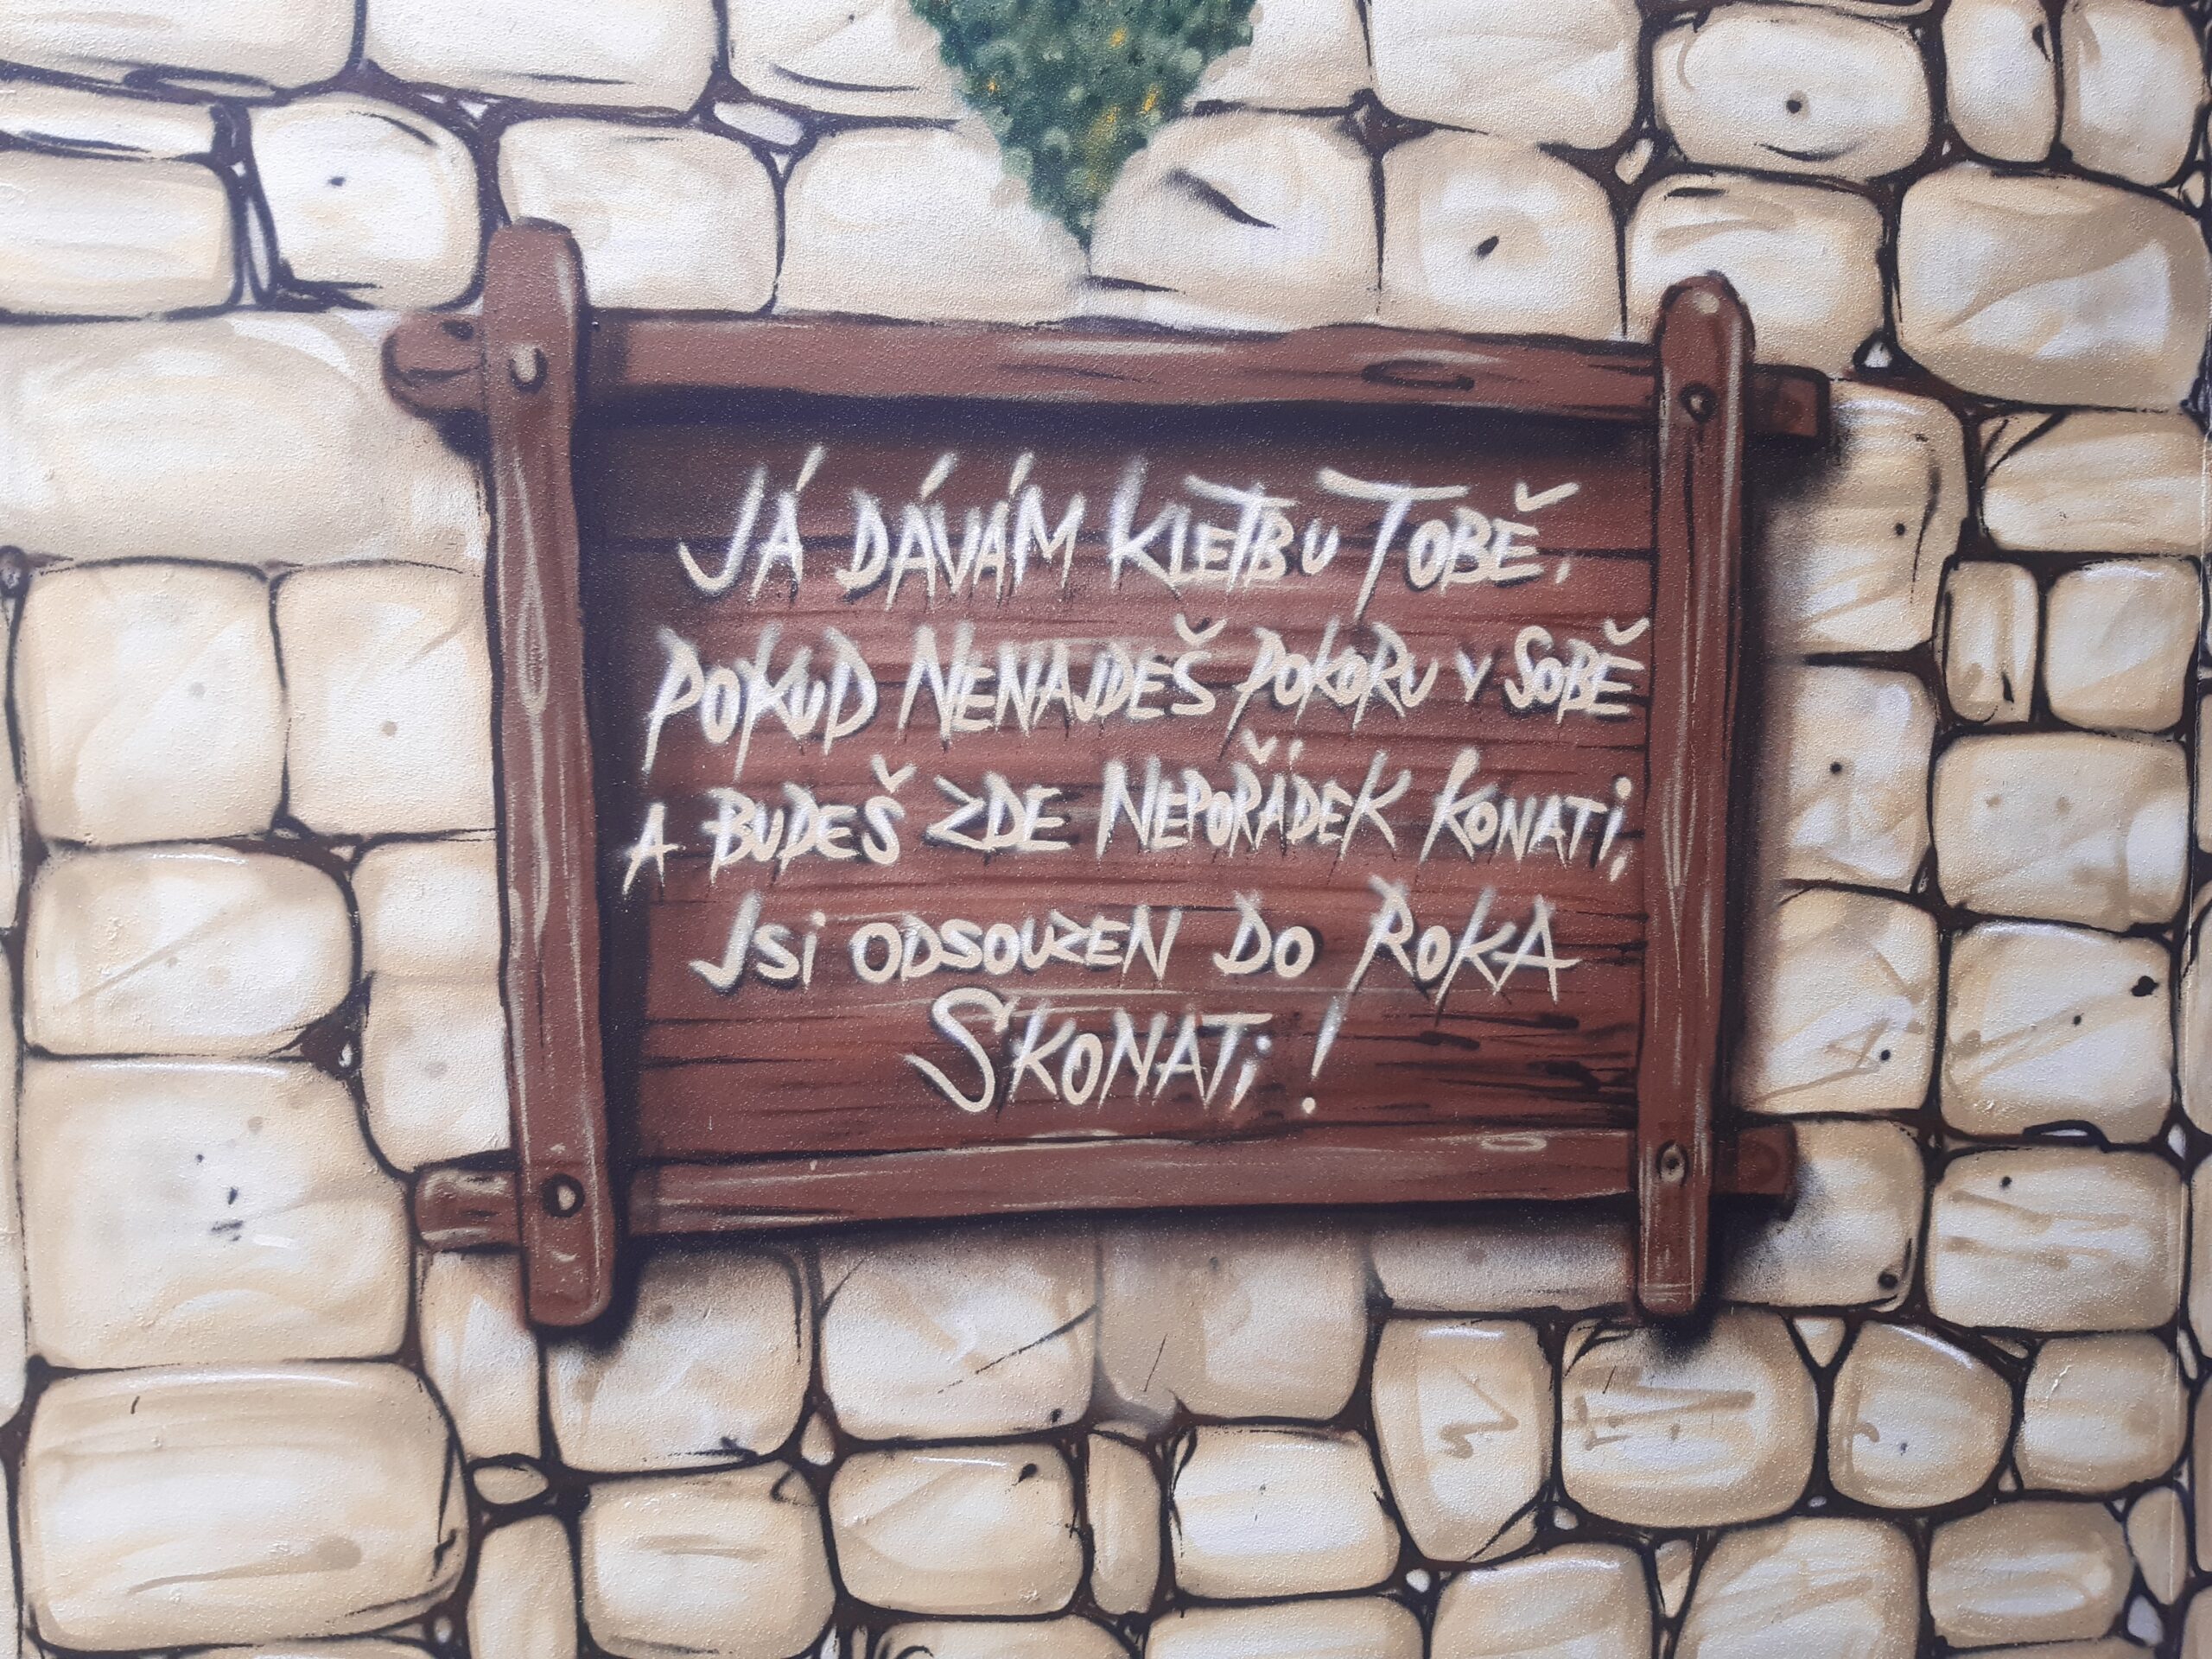 JÁ DÁVÁM KLETBU TOBĚ,
POKUD NENAJDEŠ POKORU V SOBĚ
A BUDEŠ ZDE NEPOŘÁDEK KONATi,
JSi ODSOUZEN DO ROKA
SKONATi!